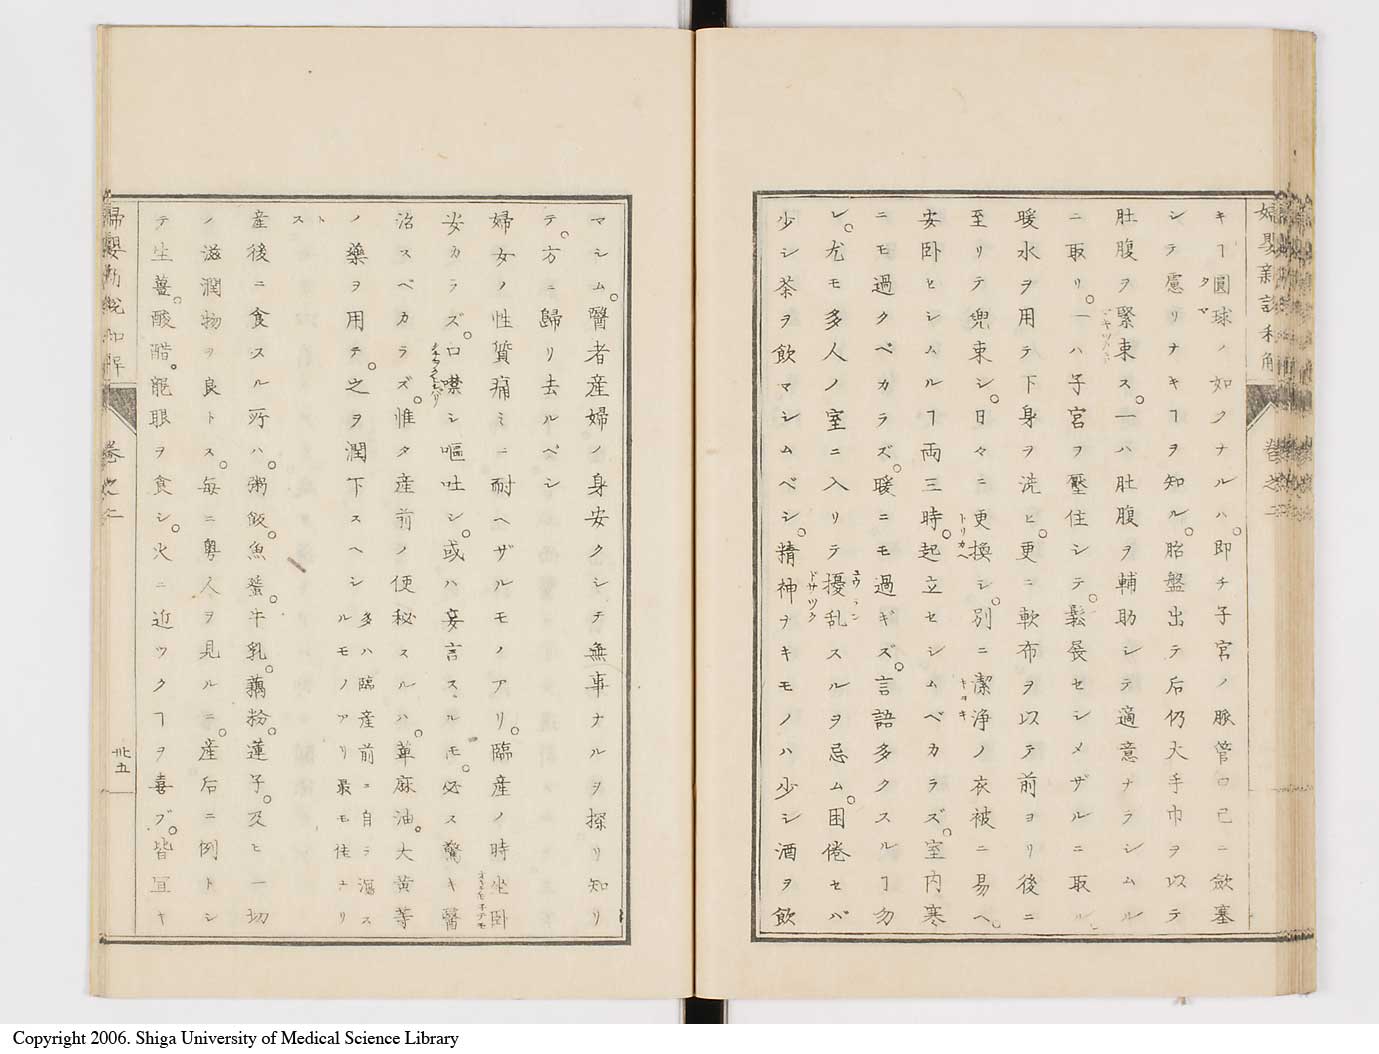 キヿ圓球ノ如クナルハ。即チ子宮ノ脉管口已ニ斂塞
タマ
シテ慮リナキヿヲ知ル。胎盤出テ后仍大手巾ヲ以テ
肚腹ヲ緊束ス。一ハ肚腹ヲ輔助シテ適意ナラシムル
ニ取リ。一ハ子宮ヲ壓住シテ。鬆長セシメザルニ取ル。
暖水ヲ用テ下身ヲ洗ヒ。更ニ軟布ヲ以テ前ヨリ後ニ
至リテ兜束シ。日々ニ更換シ。別ニ潔浄ノ衣被ニ易ヘ。
トリカヘ
キヨキ
安卧セシムルヿ両三時。起立セシムベカラズ。室内寒
ニモ過クベカラズ。暖ニモ過ギズ。言語多クスルヿ勿
レ。尤モ多人ノ室ニ入リテ擾乱スルヲ忌ム。困倦セバ
ドサツク
少シ茶ヲ飲マシムベシ。精神ナキモノハ少シ酒ヲ飲
婦嬰新説
卷之二
マシム。醫者産婦ノ身安クシテ無事ナルヲ探リ知リ
テ。方ニ歸リ去ルベシ
婦女ノ性質痛ミニ耐ヘザルモノアリ。臨産ノ時坐卧
安カラズ。口噤シ嘔吐シ。或ハ妄言スルモ。必ス驚キ醫
治スベカラズ。惟タ産前ノ便秘スルハ。萆麻油。大黄等
ノ藥ヲ用テ。之ヲ潤下スヘシ
多ハ臨産前ニ自ラ瀉ス
ルモノアリ最モ佳ヨリ
トス
産後ニ食スル所ハ。粥飯。魚蜑。牛乳。藕粉。蓮子。及ヒ一切
ノ滋潤物ヲ良トス。毎ニ粤人ヲ見ルニ。産后ニ例トシ
テ生薑。酸醋。龍眼ヲ食シ。火ニ近ツクヿヲ喜ブ。皆宜キ
卷之二
卅五
Copyright 2006. Shiga University of Medical Science Library